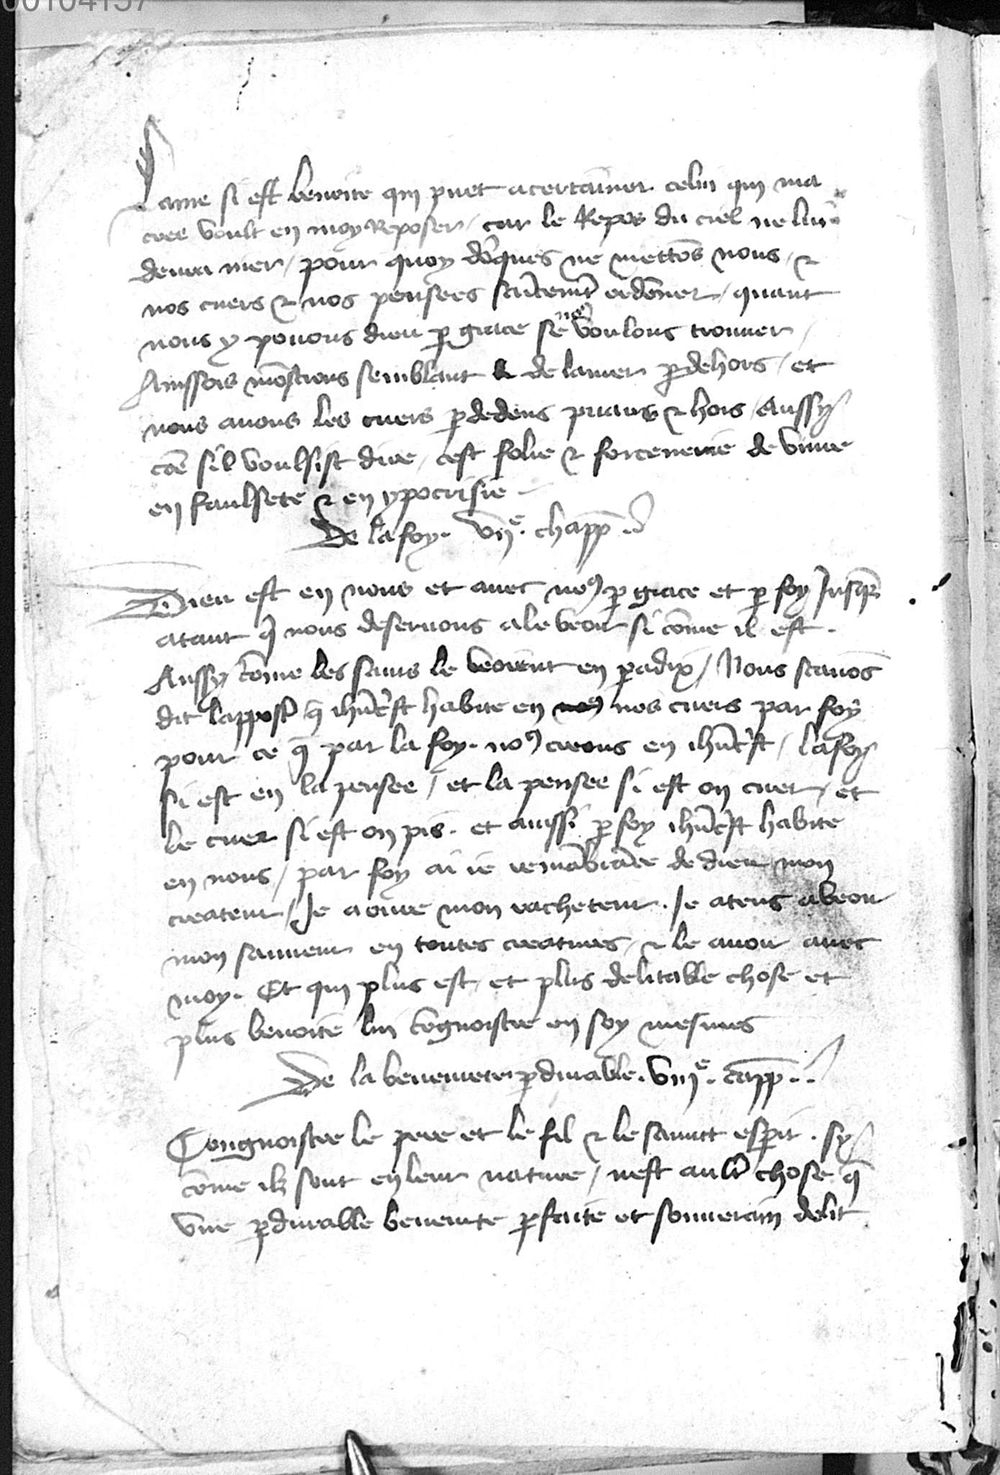 00104157
Lame si est benoite qui puet acertainer celui qui ma
cree voult en moy Reposer / car le Repos du ciel ne lui
deura nier / pour quoy dōques ne mettōs nous /
nos cuers & nos pensees ordōner / quant
nous y pouons dieu ꝑ grace se no⁹ voulons trouuer /
Ainssois mōstrons semblant de lamer ꝑ dehors / et
nous auons les cuers ꝑ dedens & hors / Aussy
cōe sil voulsist dire / cest folie & forcenerie de viure
en faulsete & en ypocrisie
De la foy. vijᵉ. chapp̄
Dieu est en nous et auec no⁹ ꝑ grace et ꝑ foy Jusq̄
atant q̄ nous deseruons a le veoir si cōme il est.
Aussy cōme les sains le veoient en ꝑadix / Nous scauōs
dit lappostr̄ q̄ ihūcrist habite en nos cuers par foy
pour ce q̄ par la foy. no⁹ creons en ihūcrist / la foy
si est en la pensee / et la pensee si est on cuer / et
le cuer si est on pis. et aussi ꝑ foy ihūcrist habite
en nous / par foy ai ie remābrāce de dieu mon
createur / Je aoure mon racheteur. Je atens a veoir
mon sauueur en toutes creatures / & le auoir auec
moy. Et qui plus est / et plus delitable chose et
plus benoite lui cōgnoistre en soy mesmes
De la beneurete ꝑdurable. viijᵉ. capp̄
Congnoistre le pere et le fil & le sainct esperit. sy
cōme ilz sont en leur nature / nest aultr̄ chose q̄
vne ꝑdurable beneurte ꝑfaite et souuerain delit